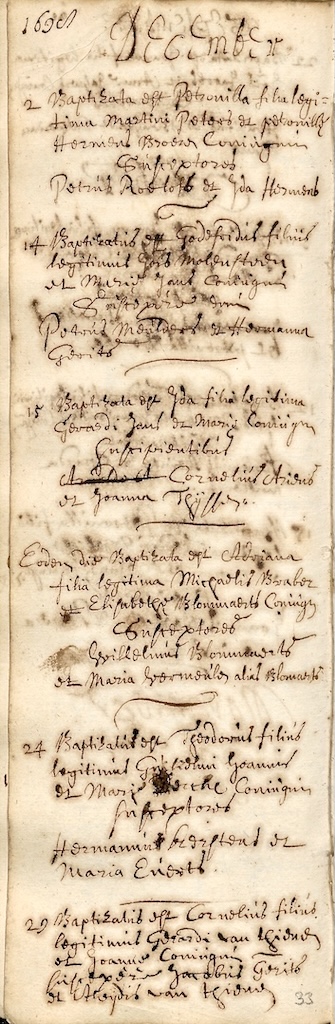 1698
December
2 Baptizata est Petronilla filia legi-
tima Martini Peters et petronillę
Hermens Broeren Coniugum
Susceptores
Petrus Roelofs et Ida Hermens
14 Baptizatus est Godefridus filius
legitimus Molensteen
et Marię Jans Coniugum
Suscepere
Petrus Meulders et Hermanna
Gerits
15 Baptizata est Ida filia legitima
Gerardi Jans et Marię Coniugum
Suscipientibus
Cornelius Ariens
et Joanna Thyssen.
Eodem die Baptizata est Adriana
filia legitima Michaelis Braber
et Elisabethę Blommaerts Coniugum
Susceptores
Willelmus Blommaerts
et Maria Vermeulen alias Blomaerts
24 Baptizatus est Theodorus filius
legitimus Guilielmi Joannis
et Marię Coniugum
susceptores
Hermannus et
Maria Everts.
29 Baptizatus est Cornelius filius
legitimus Gerardi van thienen
et Joannę Coniugum
suscepere Jacobus Gerits
et van thienen
33